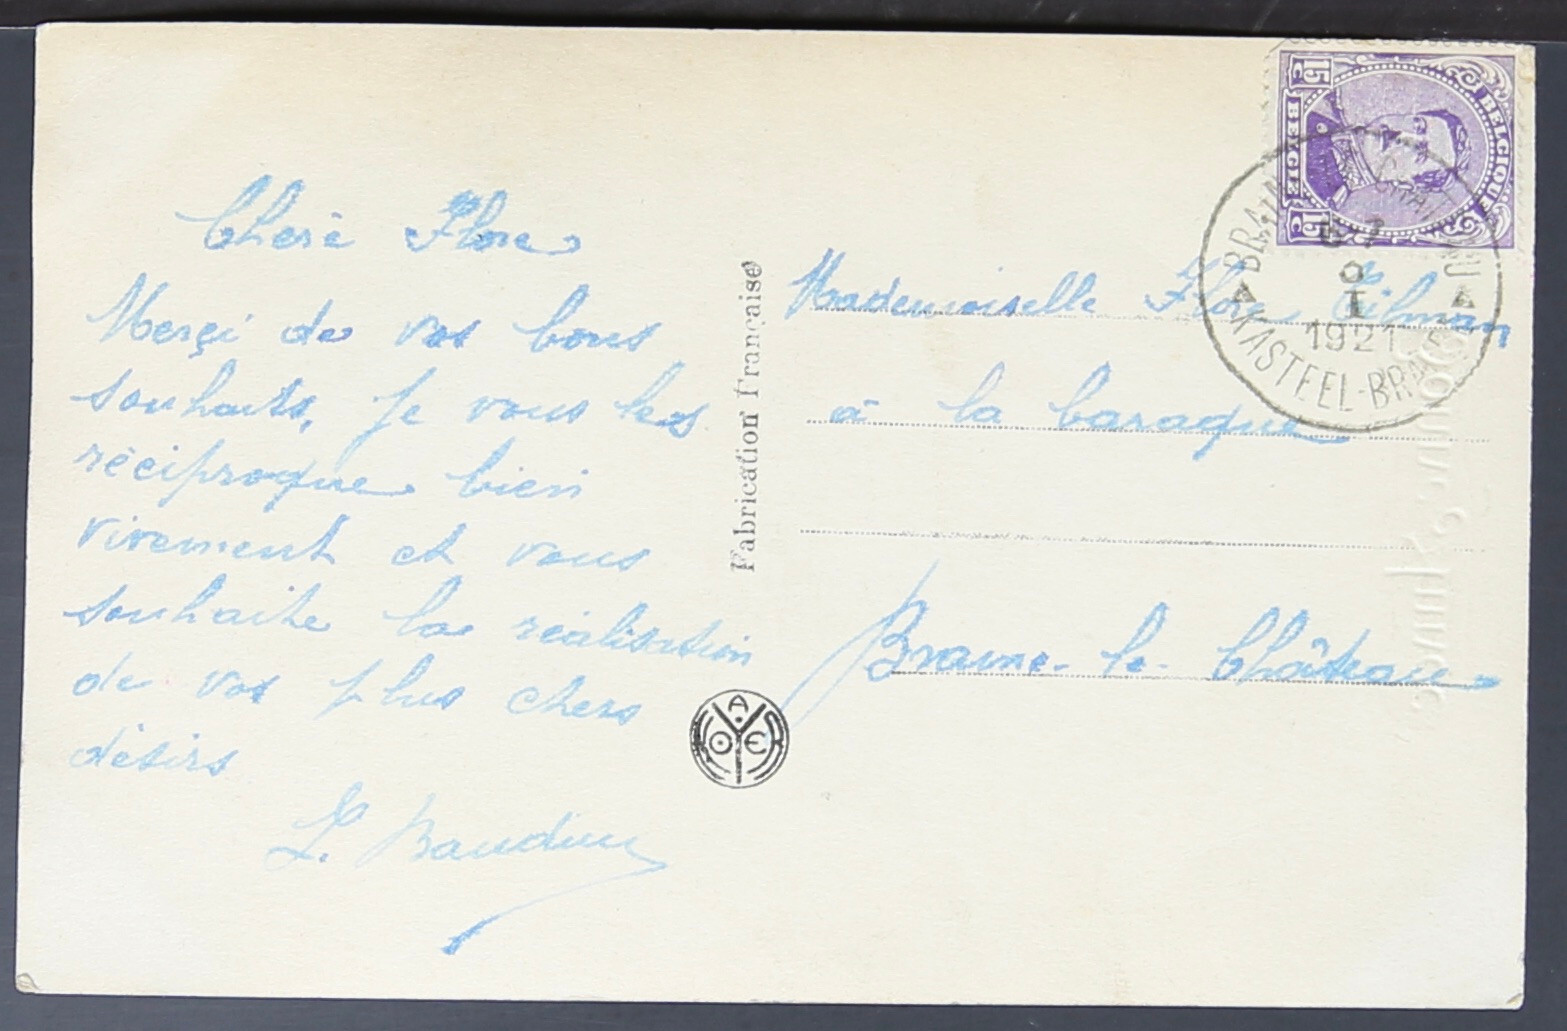 Chère Flore
Merçi de vos bons
souhaits, je vous les
réciproque bien
vivement et vous
souhaite la réalisation
de vos plus chers
désirs
L. Baudine
Fabrication Française
A
O E
BELGIQUE
BELGIE
15 C
15 C
1921
KASTEEL-BRA
Mademoiselle Flore Tilman
à la baraque
Braine-le-Château